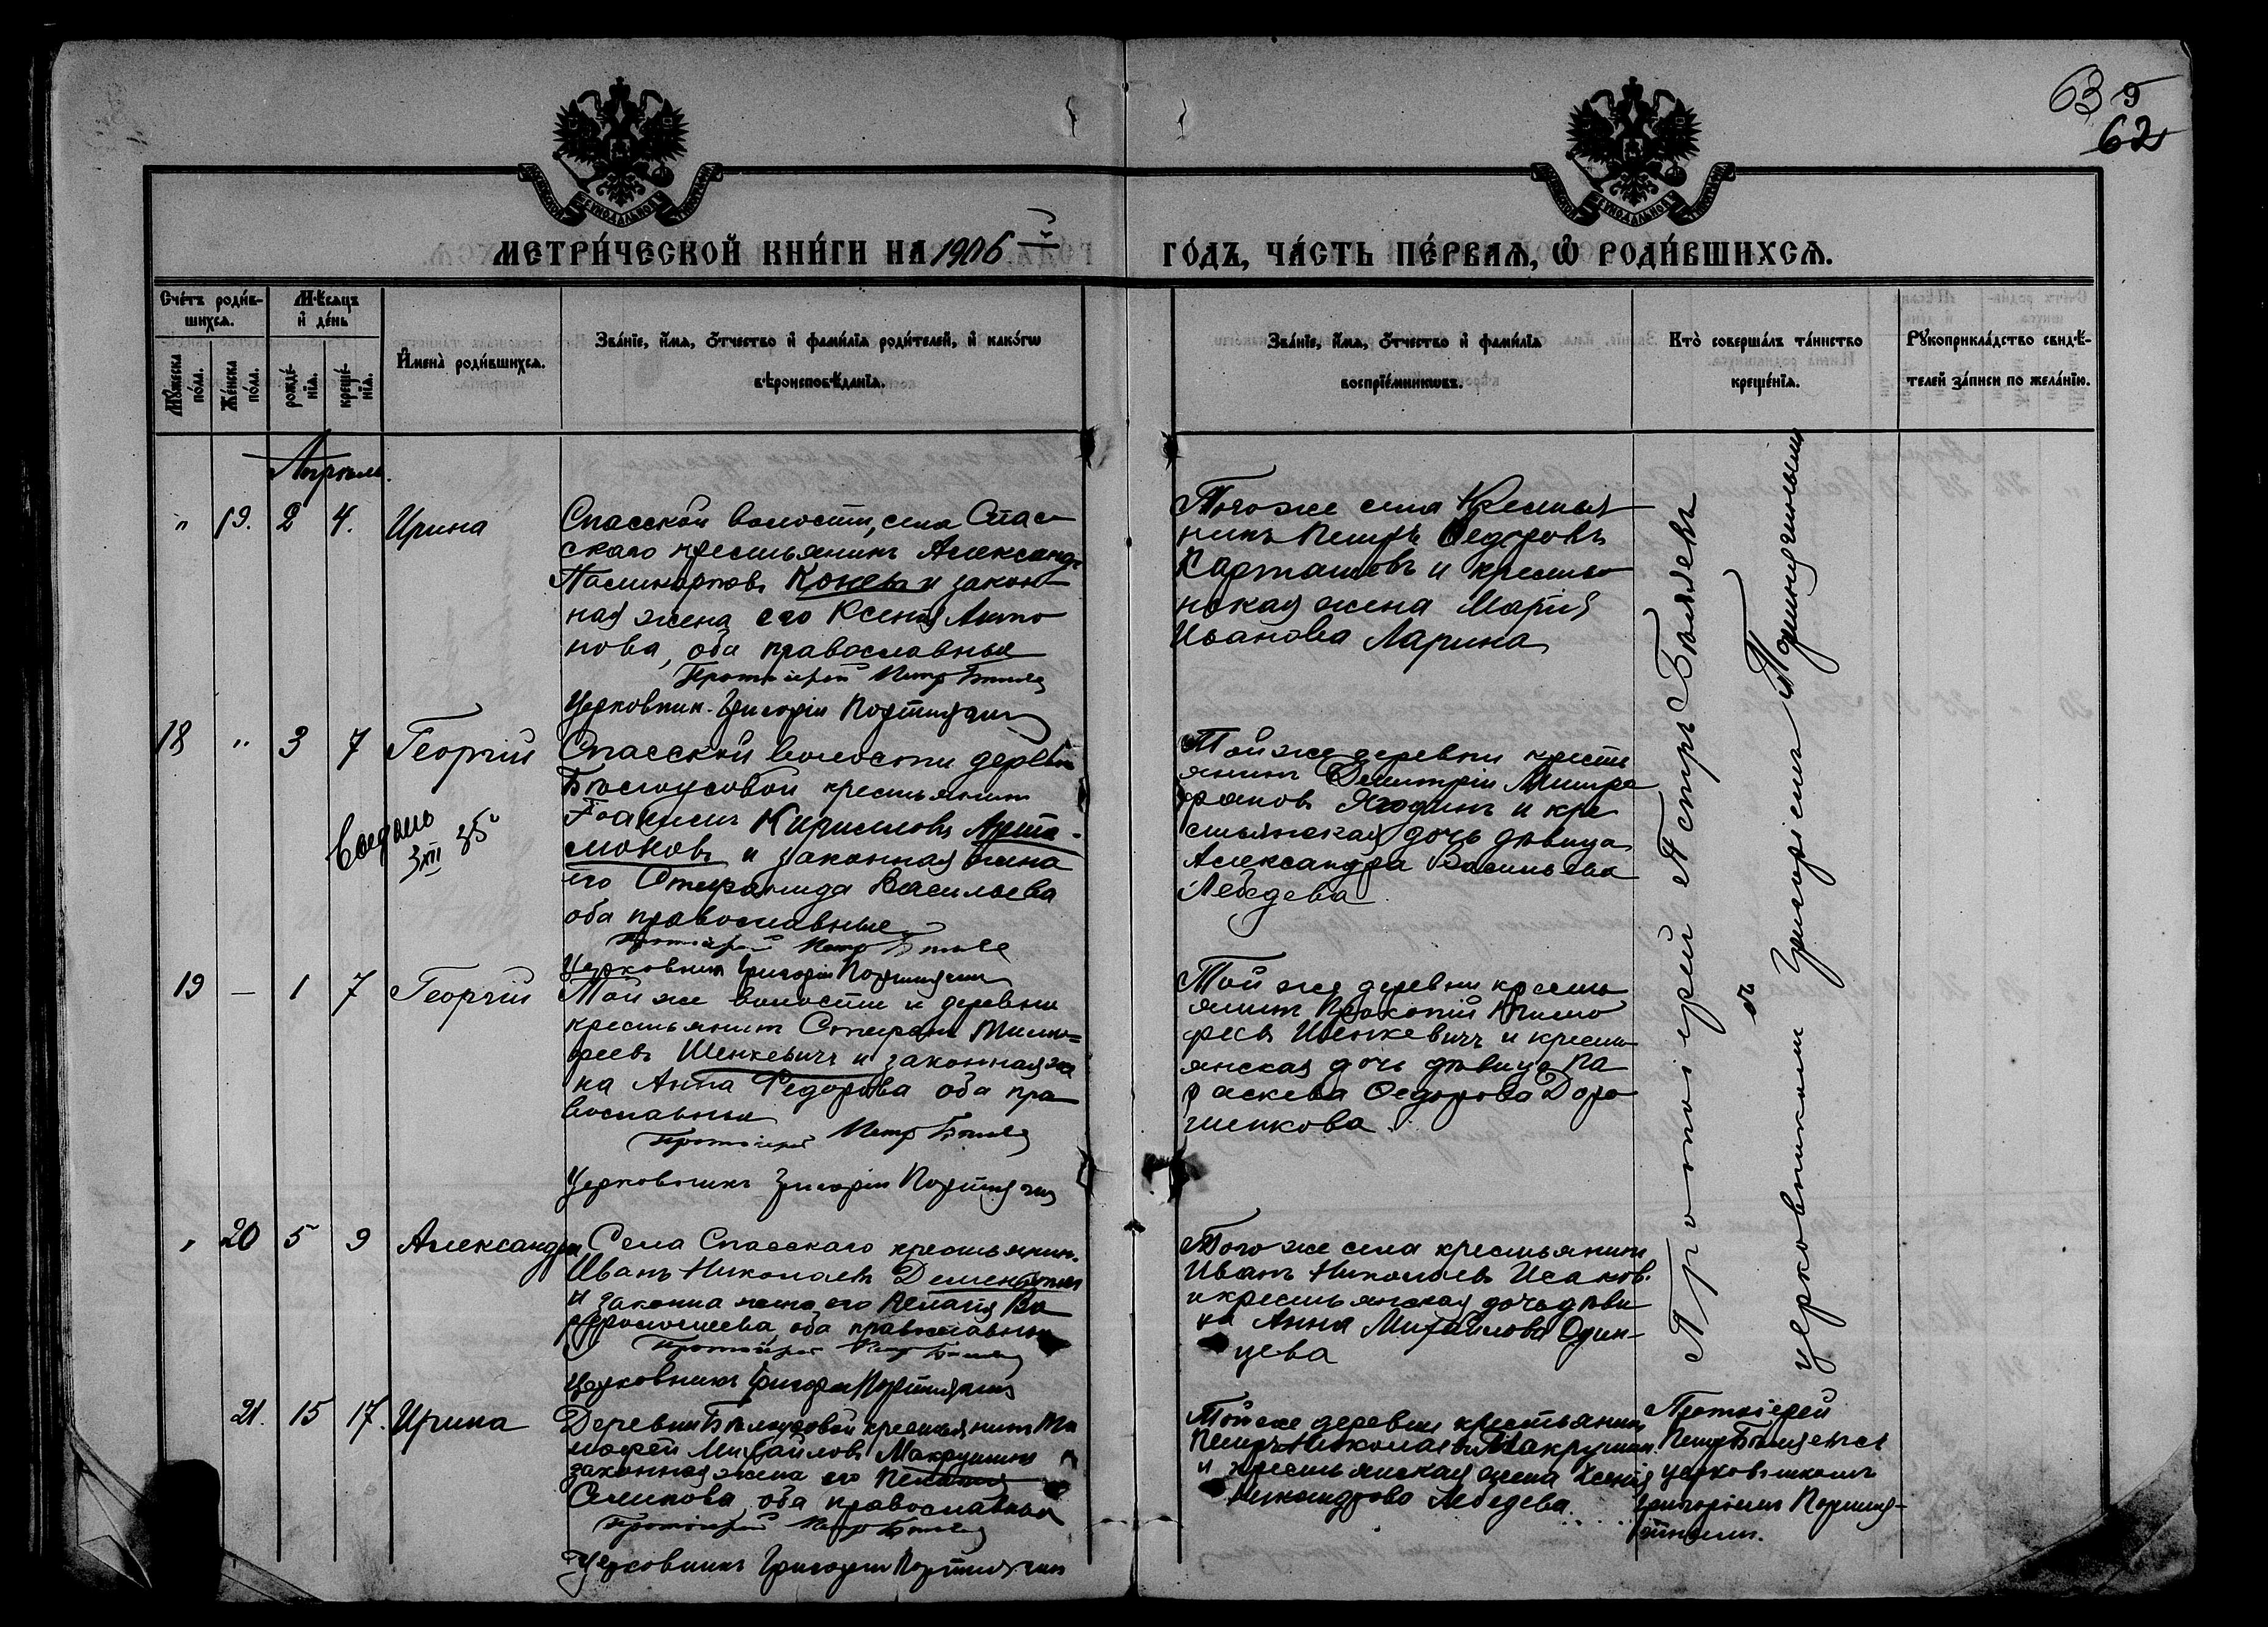 63 9
62
МЕТРИ́ЧЕСКОЙ КНИ́ГИ НА 1906 й
ГО́ДЪ, ЧА́СТЬ ПЕ́РВАѦ, Ѡ РОДИ́ВШИХСѦ.
Сче́тъ роди́в-
шихсѧ.
Мѣ́сѧцъ
и҆ де́нь
Мꙋ́жеска
по́ла.
Же́нска
по́ла.
рожде́-
нїѧ.
креще́-
нїѧ.
И҆мена̀ роди́вшихсѧ.
Зва́нїе, и҆́мѧ, ѻ҆́тчество и҆ фамѝлїѧ роди́телей, и҆ како́гѡ
вѣроисповѣ́данїѧ.
Зва́нїе, и҆́мѧ, ѻ҆́тчество и҆ фамѝлїѧ
воспрїе́мникѡвъ.
Кто̀ соверша́лъ та́инство
креще́нїѧ.
Рꙋкоприкла́дство свидѣ́-
телей за́писи по жела́нїю.
Апрѣль.
" 19. 2 4. Ирина
Спасской волости, села Спас-
скаго крестьянинъ Александръ
Коневъ и закон-
ная жена его Ксенія Анто
нова, оба православные
Протоіерей Петръ Бѣляевъ
Церковник. Григорій Портнягинъ
Того же села Крестья
нинъ Петръ Ѳедоровъ
Карташовъ и крестья
нская жена Марія
Иванова Ларина
18 " 3 7 Георгій
Спасской волости дерев.
Бѣлоусовой крестьянинъ
Іоакимъ Кирилловъ Арта-
моновъ и законная жена
его Стефанида Васильева
оба православные
Протоіерей Петръ Бѣляе
Церковник Григорій Портнягин
Той же деревни кресть
янинъ Димитрій Митро
фановъ Ягодинъ и кре
стьянская дочь дѣвица
Александра Васильева
Лебедева
35
19 — 1 7 Георгій
Той же волости и деревни
крестьянинъ Стефанъ Тимо-
феевъ Шенкевичъ и законная же
на Анна Федорова оба пра
вославные
Протоіерей Петръ Бѣляев
Церковникъ Григорій Портнягин
Той же деревни кресть
янинъ Прокопій Тимо
феевъ Шенкевичъ и кресть
янская дочь дѣвица Па
раскева Ѳедорова Доро
шенкова.
" 20 5 9 Александра
Села Спасскаго крестьянин.
Иванъ Николаевъ Дементьевъ
и законна жена его Пелагія Ва
рфоломеева, оба православные
Протоіерей Петръ Бѣляев
Церковникъ Григорій Портнягин
Того же села крестьянинъ
Иванъ Николаевъ Исаков.
и крестьянская дочь дѣви
ца Анна Михайлова Один-
цева
21. 15 17. Ирина
Деревни Бѣлоусовой крестьянинъ Ти
мофей Михайловъ Макрушинъ
законная жена его Пелагія
Семенова, оба православные
Протоіерей Петръ Бѣляев
Церковникъ Григорій Портнягин
Той же деревни крестьянинъ
Петръ Николаевъ Макрушин.
и крестьянская жена Ксенія
Никандрова Лебедева.
Протоіерей Петръ Бѣляевъ
съ
церковникомъ Григоріемъ Портнягинымъ
Протоіерей
Петръ Бѣляевъ съ
церковникомъ
Григоріемъ Портня-
гинымъ.